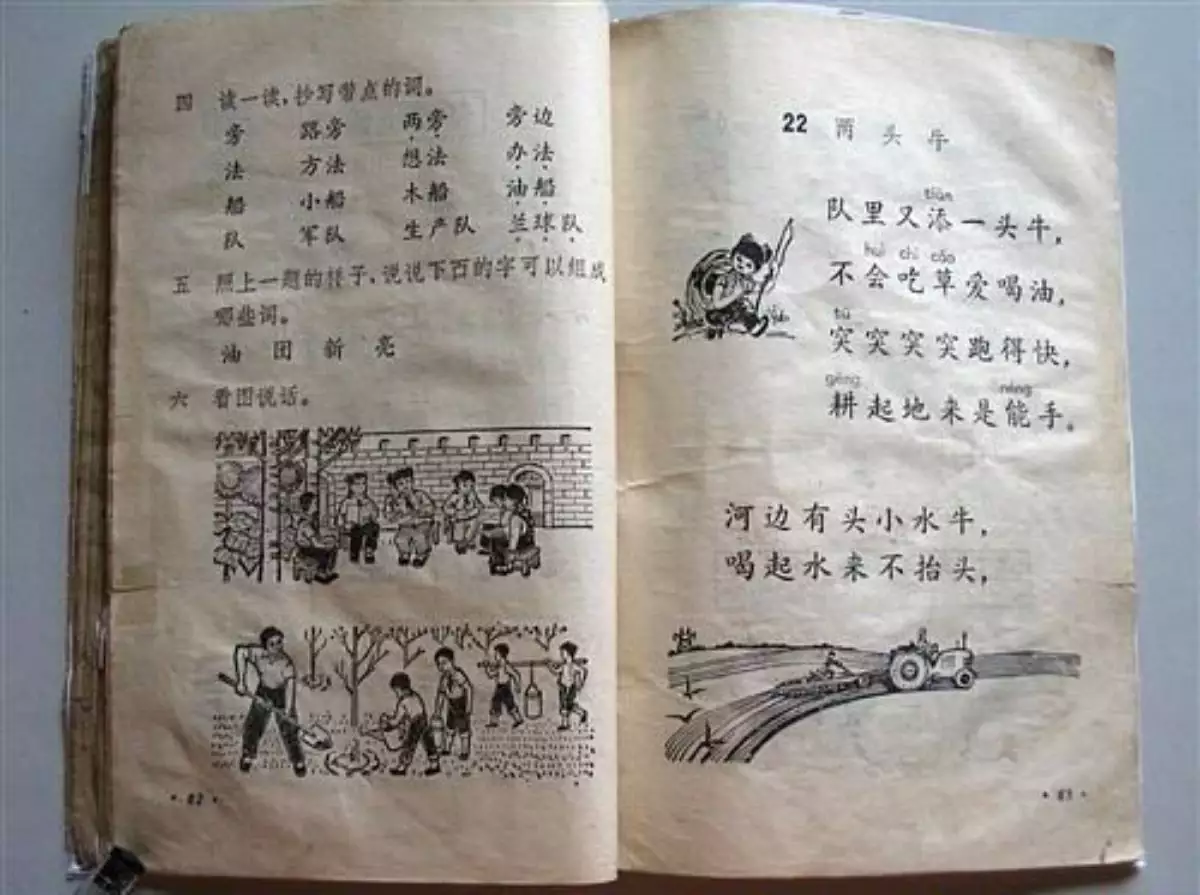 四 读一读,抄写带点的词。
旁 路旁 两旁 旁边
法 方法 想法 办法
船 小船 木船 油船
队 军队 生产队 兰球队
五 照上一题的样子,说说下面的字可以组成
哪些词。
油 团 新 亮
六 看图说话。
· 82 ·
22 两头牛
tiān
队里又添一头牛,
huì chī cǎo
不会吃草爱喝油,
tū
突突突突跑得快,
gēng néng
耕起地来是能手。
河边有头小水牛,
喝起水来不抬头,
· 83 ·